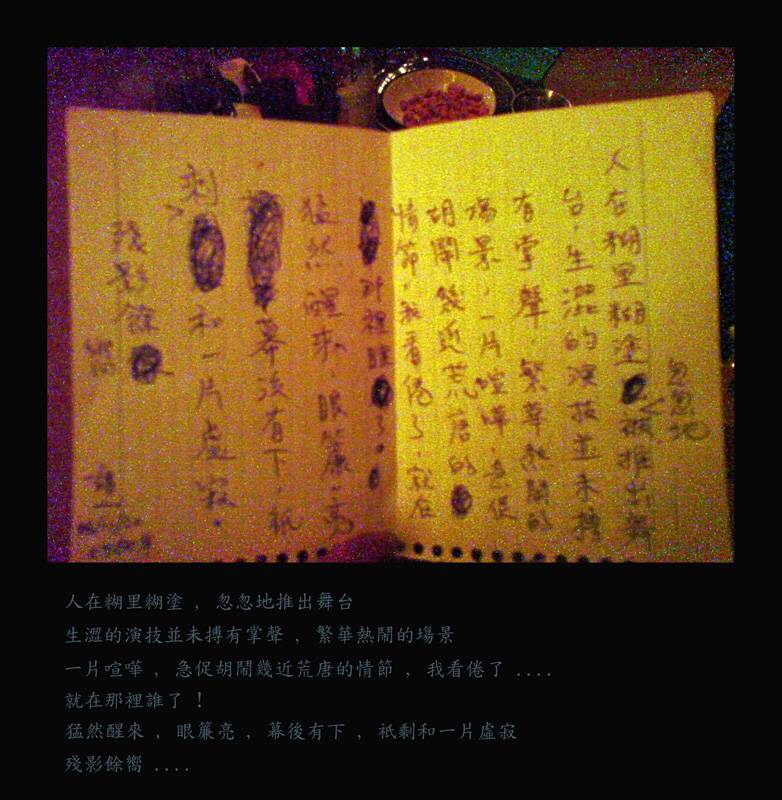 人在糊里糊塗
忽忽地
被推出舞
台，生澀的演技並未搏
有掌聲，繁華熱鬧的
場景，一片喧嘩，急促
胡鬧幾近荒唐的
情節，我看倦了，就在
那裡睡了。
猛然醒來，眼簾亮
幕後有下，祇
剩
和一片虛寂。
殘影餘
嚮
人在糊里糊塗 , 忽忽地推出舞台
生澀的演技並未搏有掌聲 , 繁華熱鬧的場景
一片喧嘩 , 急促胡鬧幾近荒唐的情節 , 我看倦了 ....
就在那裡誰了 !
猛然醒來 , 眼簾亮 , 幕後有下 , 祇剩和一片虛寂
殘影餘嚮 ....